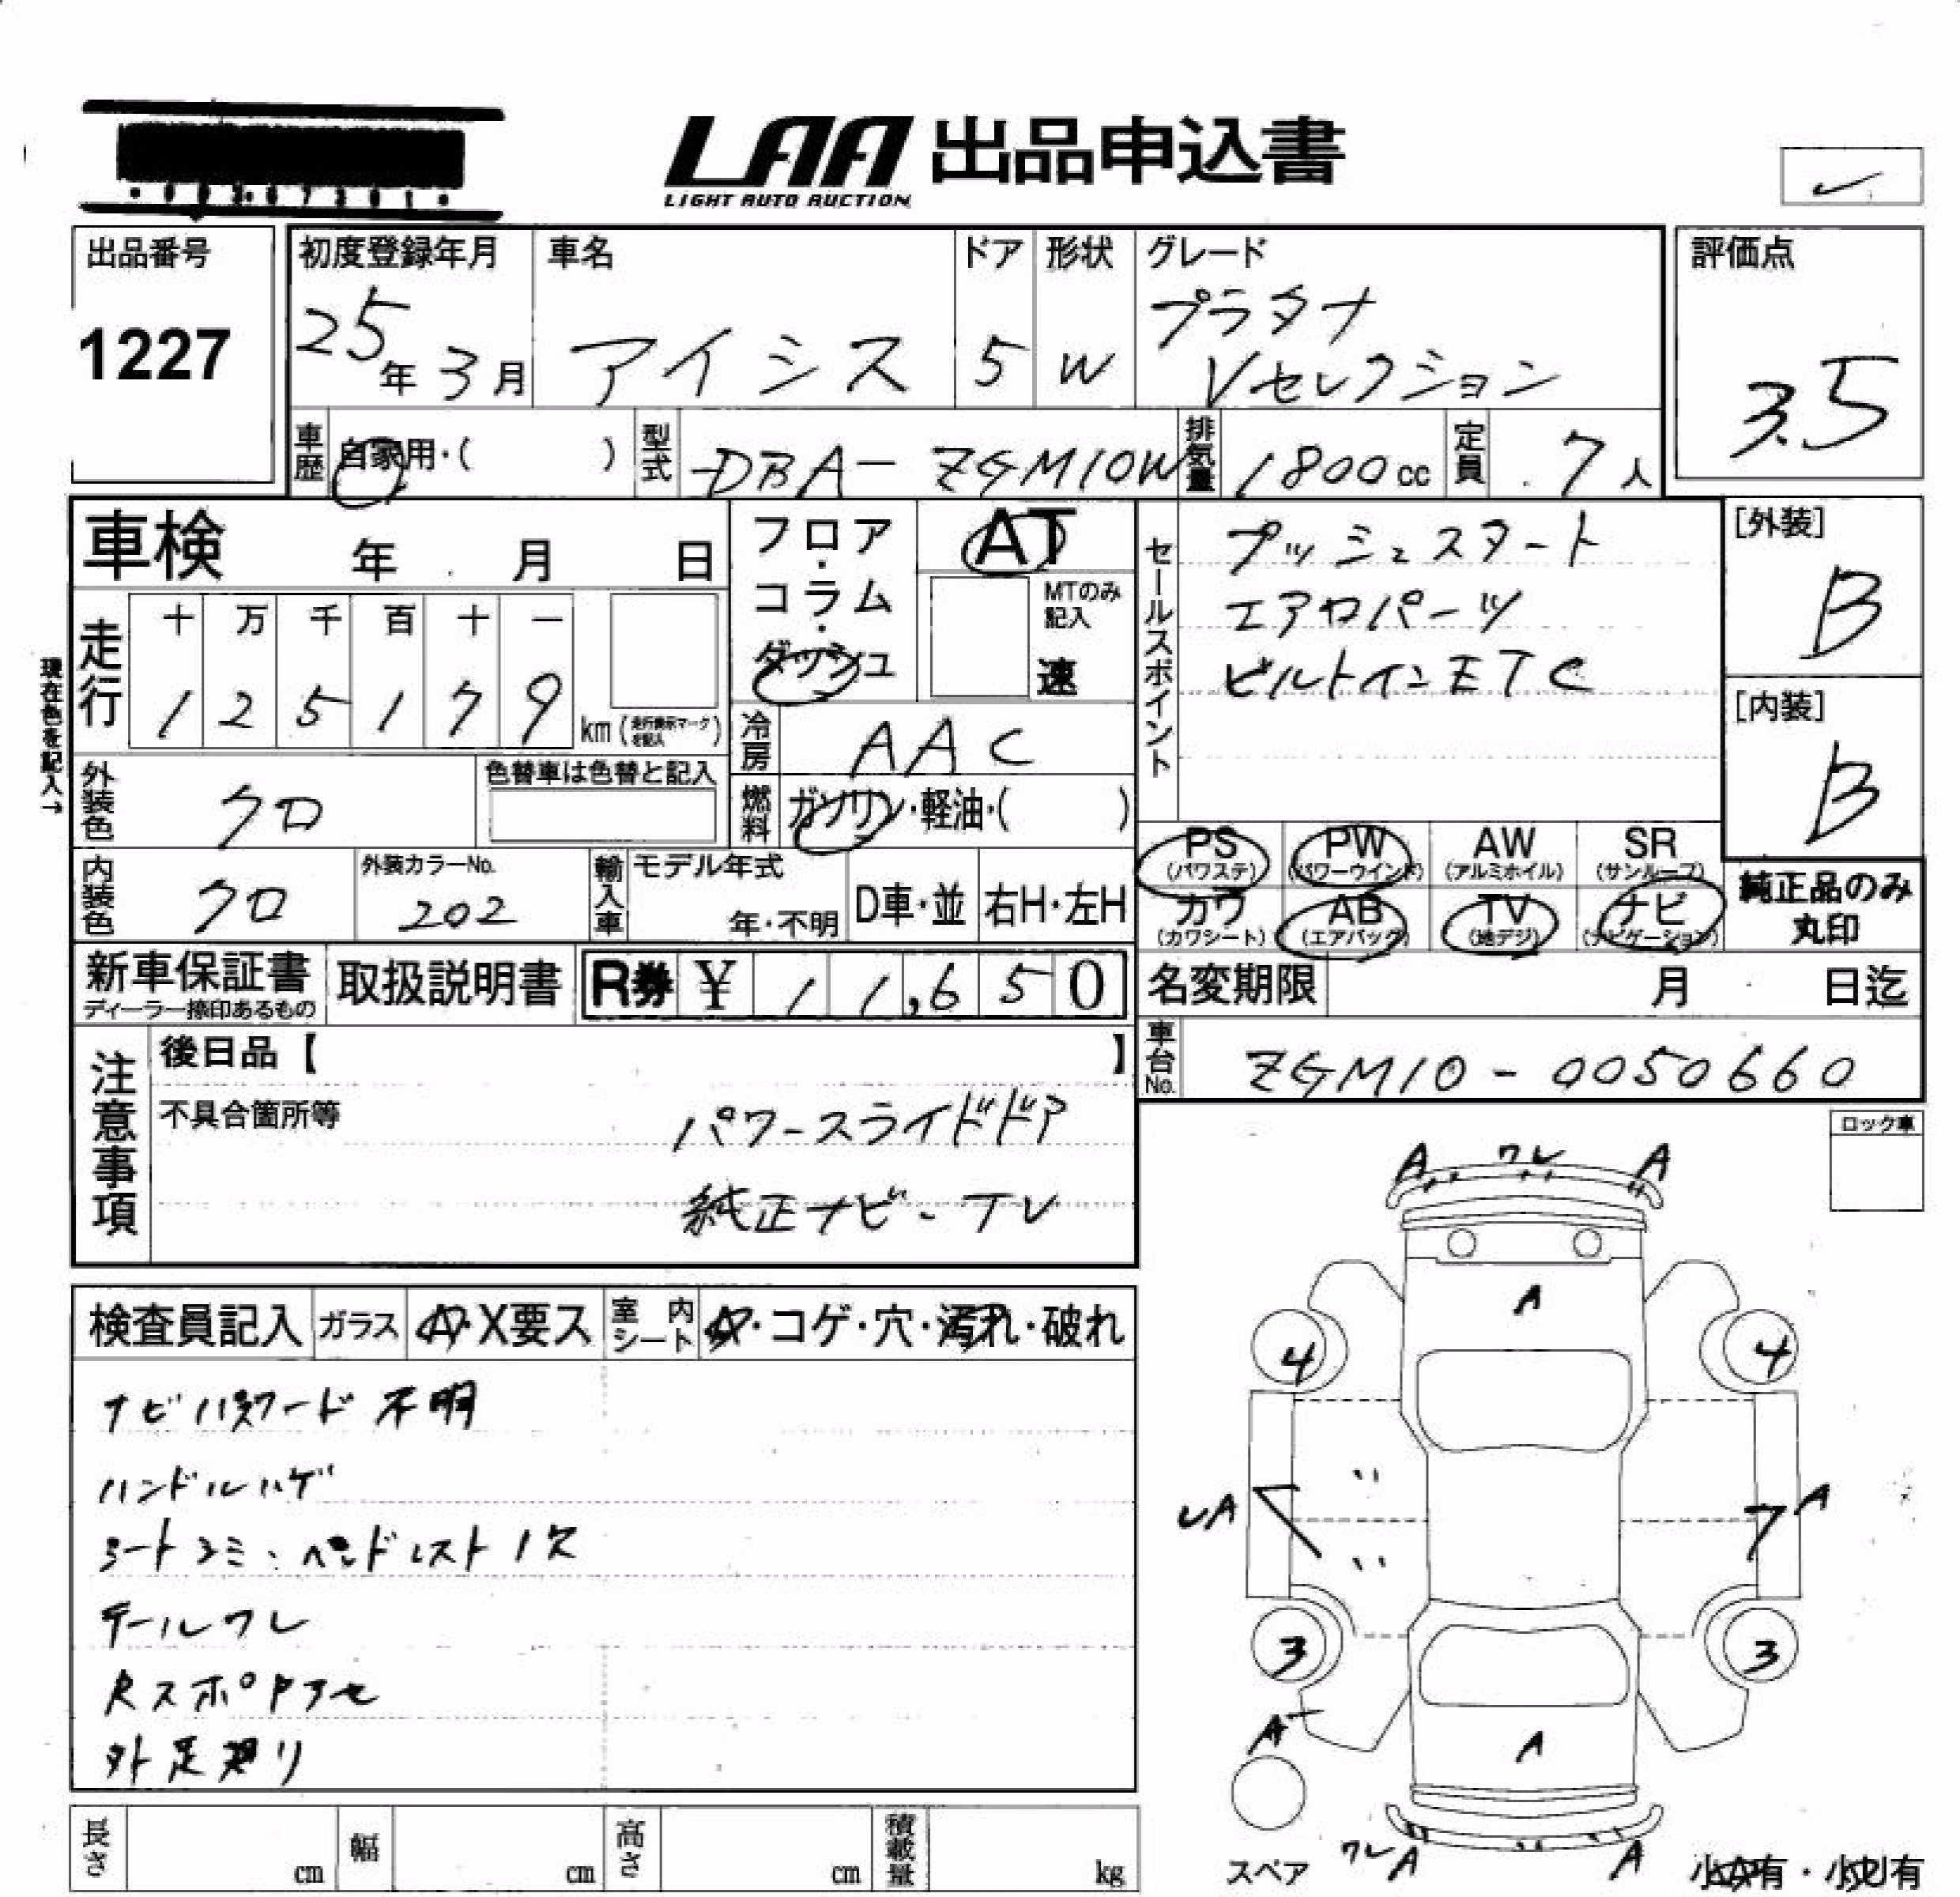 LAA 出品申込書
LIGHT AUTO AUCTION
出品番号
1227
初度登録年月
25年3月
車名
アイシス
ドア
5
形状
W
グレード
プラタナ
Vセレクション
評価点
3.5
車歴 自家用・( )
型式 DBA-ZGM10W
排気量 1800cc
定員 7人
車検 年 月 日
フロア・コラム・ダッシュ
AT
MTのみ記入
速
セールスポイント
プッシュスタート
エアロパーツ
ビルトインETC
[外装]
B
[内装]
B
現在色を記入→
走行
十 万 千 百 十 一
1 2 5 1 7 9 km (走行表示マークを記入)
冷房 AAC
外装色 クロ
色替車は色替と記入
燃料 ガソリン・軽油・( )
内装色 クロ
外装カラーNo.
202
輸入車 モデル年式
年・不明
D車・並 右H・左H
PS (パワステ) PW (パワーウインド) AW (アルミホイル) SR (サンルーフ)
カワ (カワシート) AB (エアバック) TV (地デジ) ナビ (ナビゲーション)
純正品のみ
丸印
新車保証書
ディーラー捺印あるもの
取扱説明書
R券 ¥ 11,650
名変期限 月 日迄
車台No. ZGM10-0050660
注意事項
後日品【 】
不具合箇所等
パワースライドドア
純正ナビ・TV
ロック車
検査員記入 ガラス A・X要ス 室内シート A・コゲ・穴・汚れ・破れ
ナビパスワード不明
ハンドルハゲ
シートシミ・ヘッドレスト1欠
テールワレ
外足廻り
A ワレ A
A
4 4
A A
3 3
A
A
スペア
ワレ A A
小A有・小U有
長さ cm 幅 cm 高さ cm 積載量 kg